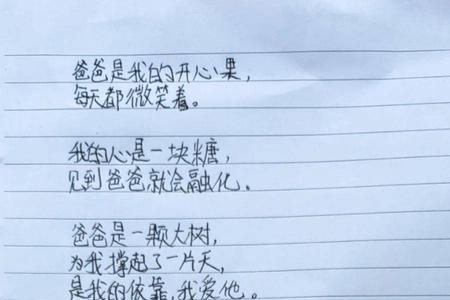 爸爸是我的开心果，
每天都微笑着。
我的心是一块糖，
见到爸爸就会融化。
爸爸是一颗大树，
为我撑起了一片天，
是我的依靠，我爱他。